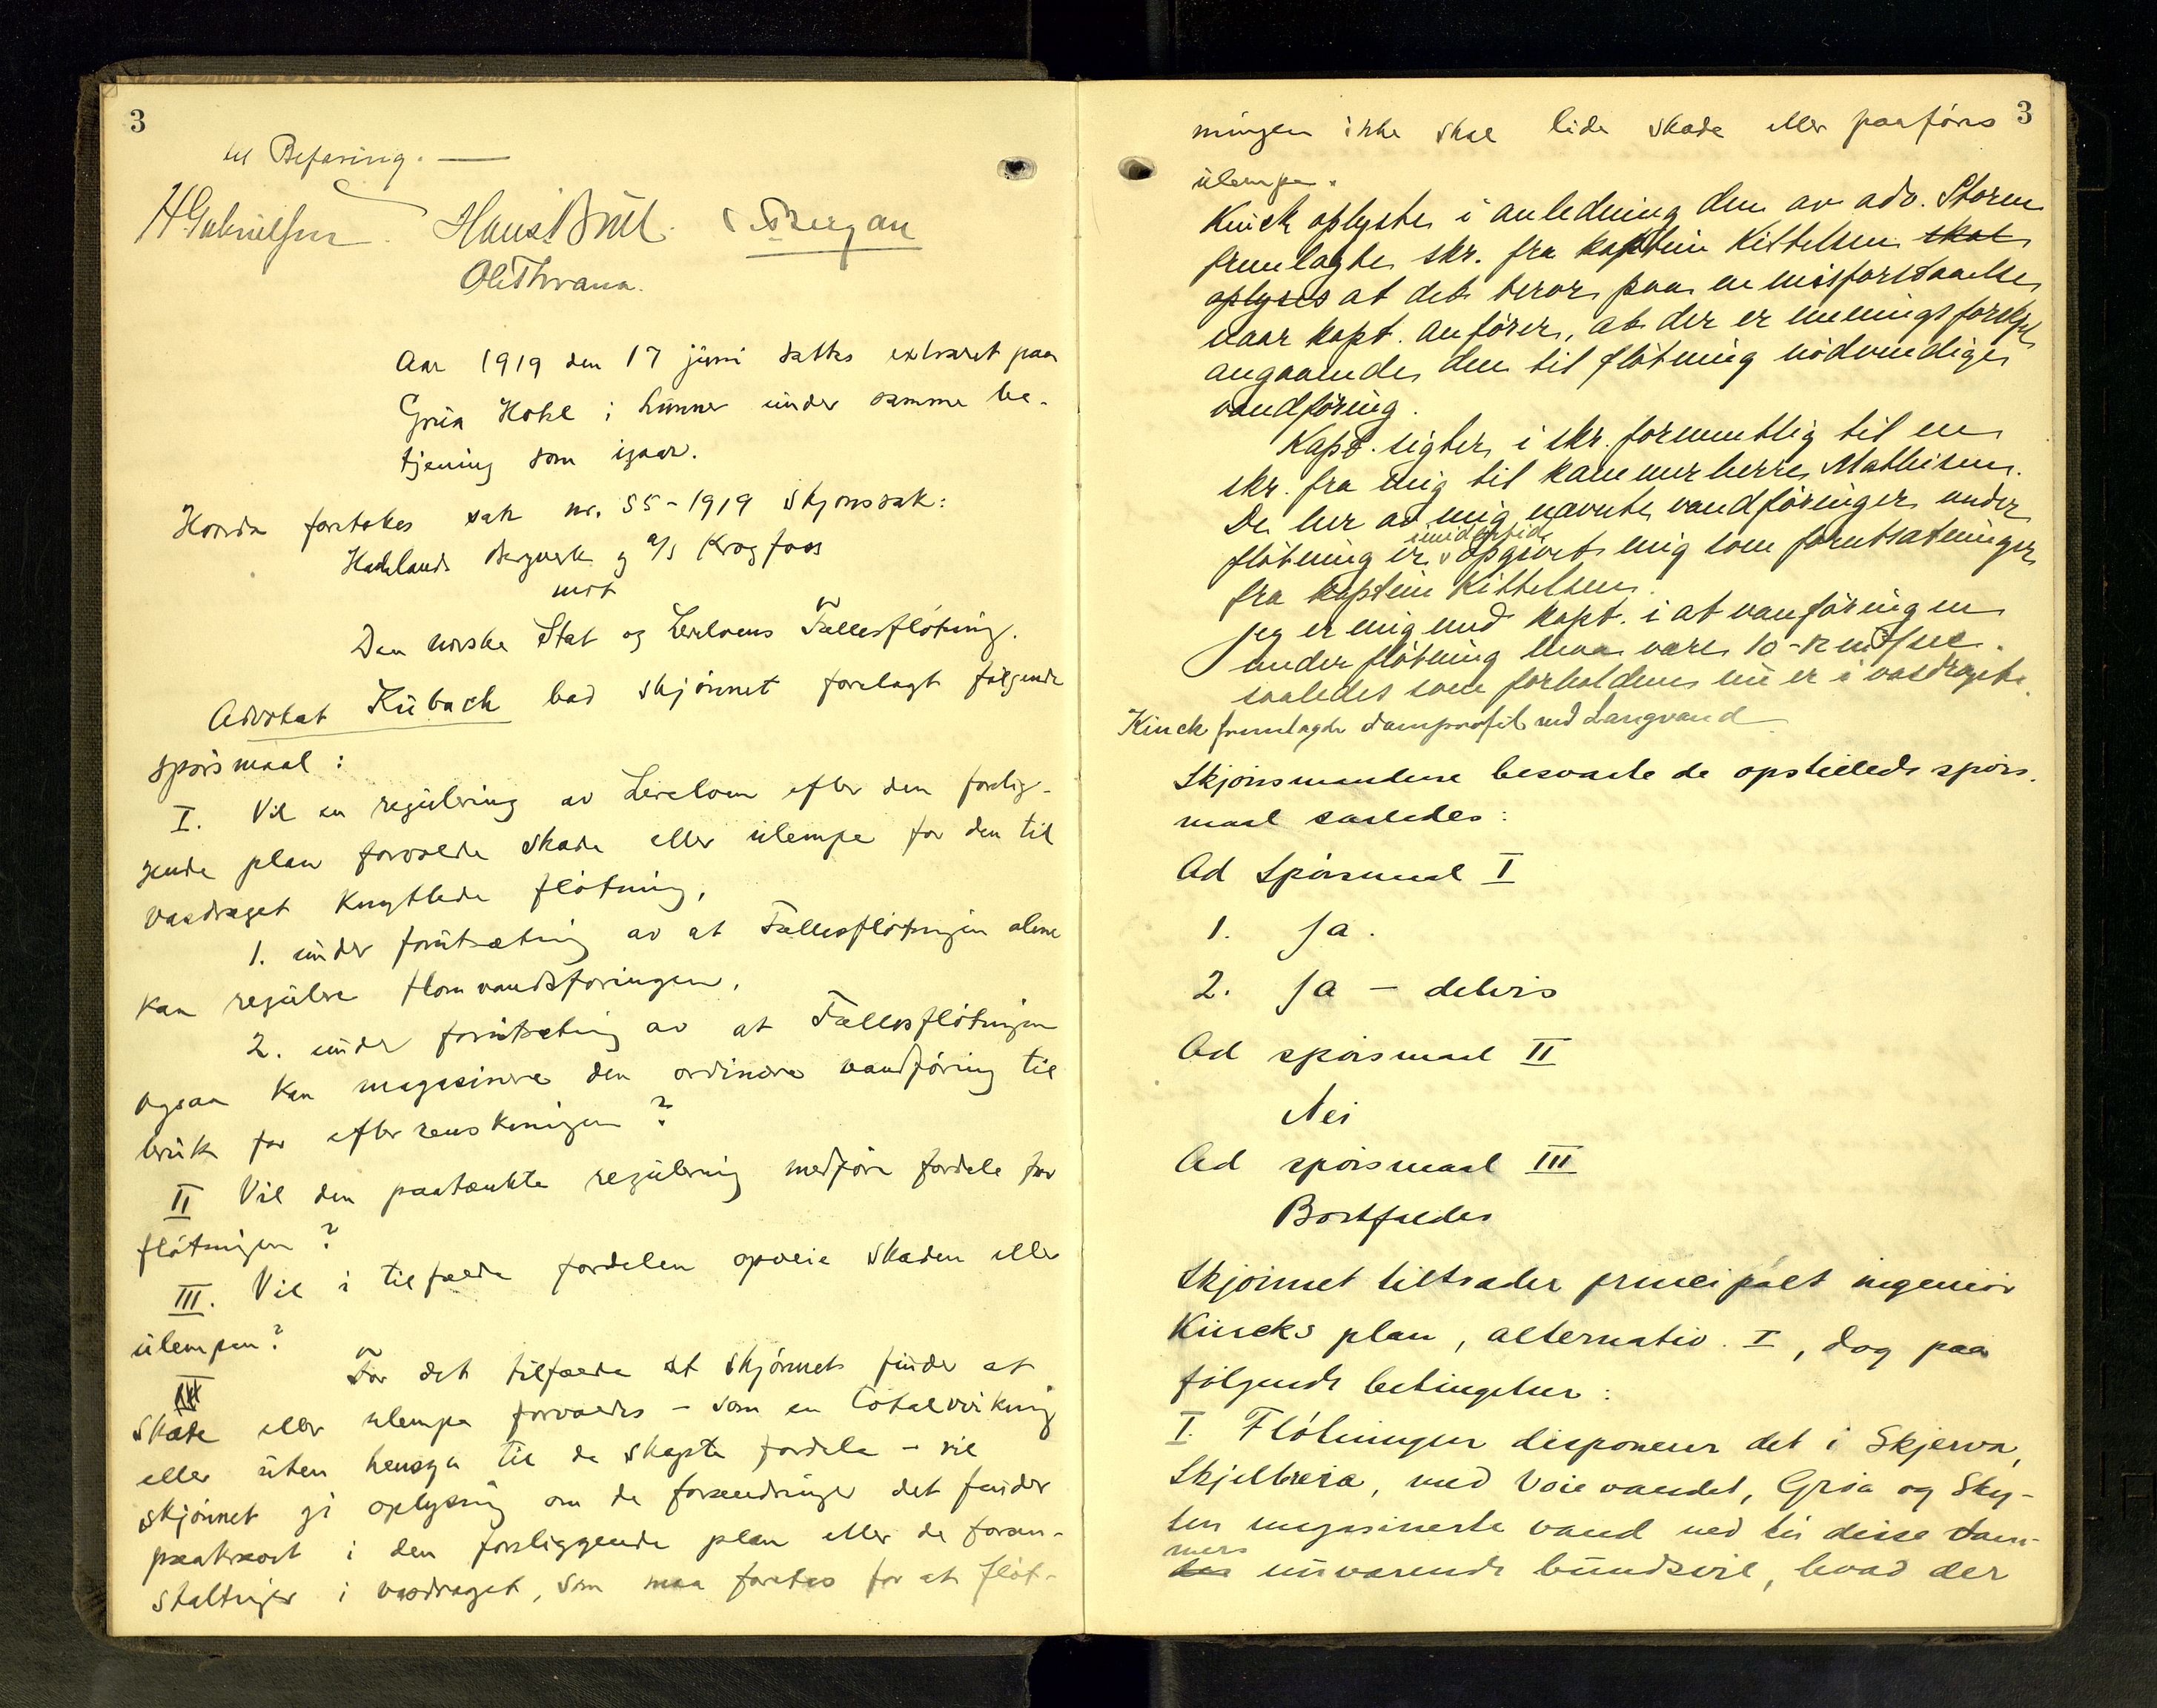 3
til Befaring. —
H Gabrielsen. Hans Bull. Bergan
Ole Thvana.
Aar 1919 den 17 juni sattes extraret paa
Grua Hotel i Lunner under samme be-
tjening som igaar.
Hvorda foretokes sak nr. 55-1919 Skjønssak:
Hadelands Bergverk og A/S Krogfoss
mot
Den norske Stat og Leirelvens Fællesfløtning.
Advokat Kübach bad skjønnet forelagt følgende
spørsmaal:
I. Vil en regulering av Leirelven efter den forelig-
gende plan forvolde skade eller ulempe for den til
vasdraget knyttede fløtning,
1. under forutsætning av at Fællesfløtningen alene
kan regulere flomvandsføringen,
2. under forutsætning av at Fællesfløtningen
ogsaa kan magasinere den ordinære vandføring til
bruk for efterrenskningen?
II Vil den paatænkte regulering medføre fordele for
fløtningen?
III. Vil i tilfælde fordelen opveie skaden eller
ulempen?
For det tilfælde at skjønnet finder at
skade eller ulempe forvoldes – som en totalvirkning
eller uten hensyn til de skapte fordele – vil
skjønnet gi oplysning om de forandringer det finder
paakrævet i den foreliggende plan eller de foran-
staltninger i vasdraget, som maa foretas for at fløt-
3
ningen ikke skal lide skade eller paaføres
ulempe.
Kinck oplyste i anledning den av adv. Storm
fremlagte skr. fra kaptein Kittelsen skal
oplyses at det beror paa en misforstaaelse
naar kapt. anfører, at der er meningsforskjel
angaaende den til fløtning nødvendige
vandføring.
Kapt. sigter i skr. formentlig til en
skr. fra mig til kammerherre Mathiesen.
De her av mig nævnte vandføringer under
imidlertid
fløtning er opgivet mig som forutsætninger
fra kaptein Kittelsen.
Jeg er enig med kapt. i at vanføringen
under fløtning maa være 10-12 m³/sec.
saaledes som forholdene nu er i vasdraget.
Kinck fremlagde damprofil ved Langvand
Skjønsmændene besvarte de opstillede spørs-
maal saaledes:
Ad Spørsmaal I
1. Ja.
2. Ja – delvis
Ad spørsmaal II
Nei
Ad spørsmaal III
Bortfalder
Skjønnet tiltræder principalt ingeniør
Kincks plan, alternativ. I, dog paa
følgende betingelser:
I. Fløtningen disponerer det i Skjerva,
Skjelbreia, med Voievandet, Grua og Sky-
ten magasinerte vand ned til disse dam-
mers
des nuværende bundsvil, hvad der